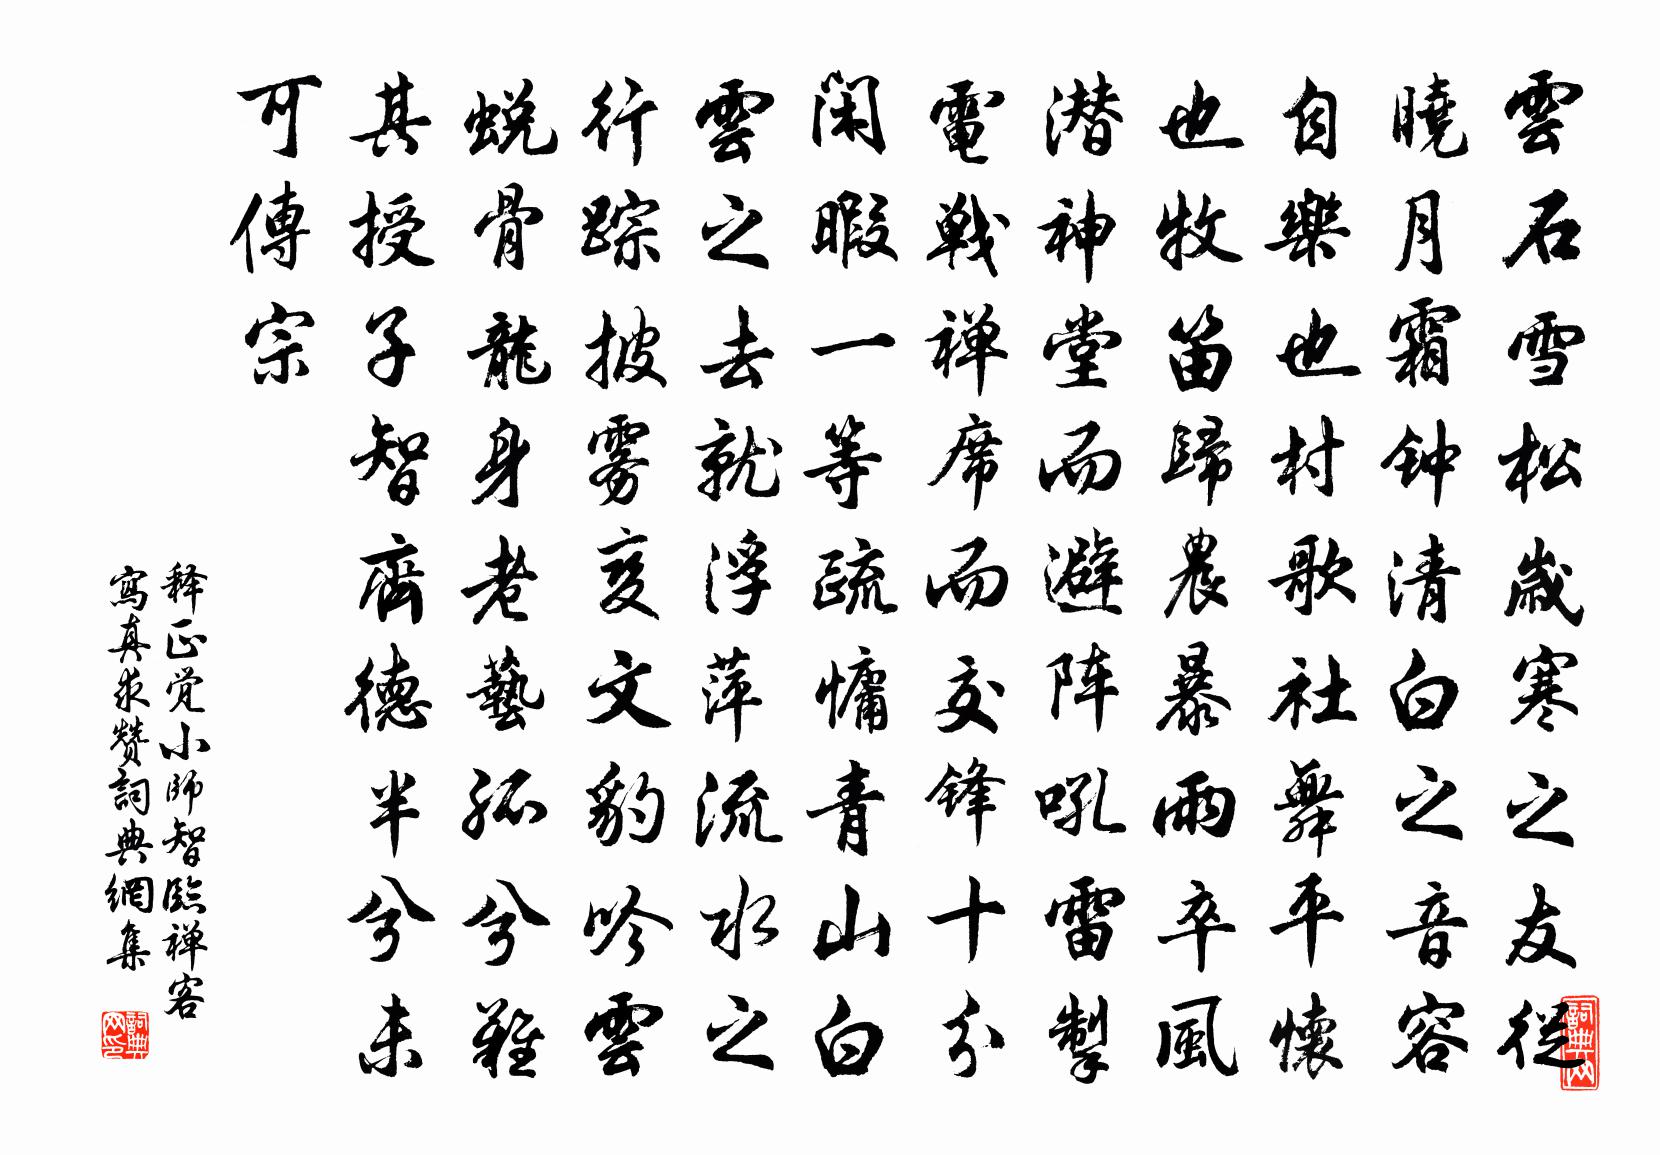 雲石雪松歲寒之友從
曉月霜钟清白之音容
自樂也村歌社舞平懷
也牧笛歸農暴雨卒風
潜神堂而避阵吼雷掣
電戦禅席而交锋十分
闲暇一等疏慵青山白
雲之去就浮萍流水之
行踪披雾变文豹吟雲
蜕骨龍身老藝孤兮難
其授子智齊德半兮未
可傳宗
释正觉小師智臨禅客
寫真求赞詞典網集
詞典网
詞典网